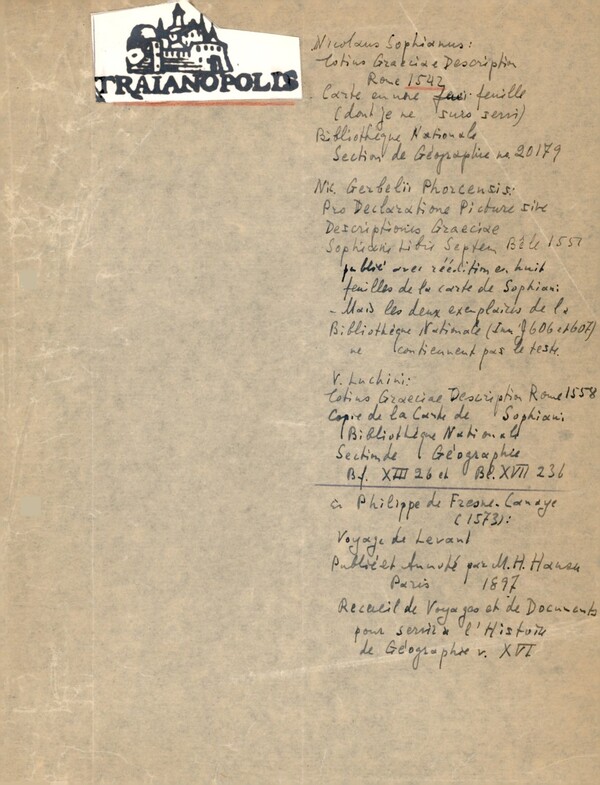 TRAIANOPOLIS
Nicolaus Sophianus:
Totius Graeciae Description
Rome 1542
Carte en une feuille
(dont je me suis servi)
Bibliothèque Nationale
Section de Géographie no 20179
Nic. Gerbelii Phorcensis:
Pro Declaratione Picturae sive
Descriptionis Graeciae
Sophiani Libri Septem Bâle 1551
publié avec réédition en huit
feuilles de la carte de Sophiani
- Mais les deux exemplaires de la
Bibliothèque Nationale (Inv. J 606 et 607)
ne contiennent pas le texte
V. Luchini:
Totius Graeciae Description Rome 1558
Copie de la Carte de Sophiani
Bibliothèque Nationale
Section de Géographie
Bf. XIII 26 et Bl. XVII 236
Philippe de Fresne-Canaye
(1573):
Voyage de Levant
Publié et Annoté par M. H. Hauser
Paris 1897
Recueil de Voyages et de Documents
pour servir à l'Histoire
de Géographie v. XVI